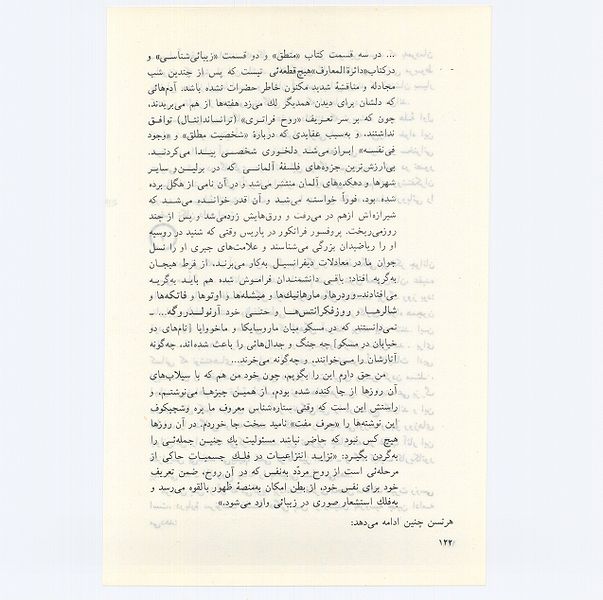 ... در سه قسمت کتاب «منطق» و دو قسمت «زیبائی‌شناسی» و
در کتاب «دائرةالمعارف» هیچ قطعه‌ئی نیست که پس از چندین شب
مجادله و مناقشهٔ شدید مکنون خاطر حضرات نشده باشد. آدم‌هائی
که دلشان برای دیدن همدیگر لك می‌زد هفته‌ها از هم می‌بریدند،
چون که بر سر تعریف «روح فرانری» (ترانساندانتال) توافق
نداشتند، و به‌سبب عقایدی که دربارهٔ «شخصیت مطلق» و «وجود
فی‌نفسه» ابراز می‌شد دلخوری شخصی پیدا می‌کردند.
بی‌ارزش‌ترین جزوه‌های فلسفهٔ آلمانی که در برلین و سایر
شهرها و دهکده‌های آلمان منتشر می‌شد و در آن نامی از هگل برده
شده بود، فوراً خواسته می‌شد و آن قدر خوانده می‌شد که
شیرازه‌اش ازهم در می‌رفت و ورق‌هایش زرد می‌شد و پس از چند
روز می‌ریخت. پروفسور فرانکور در پاریس وقتی که شنید در روسیه
او را ریاضیدان بزرگی می‌شناسند و علامت‌های جبری او را نسل
جوان ما در معادلات دیفرانسیل به‌کار می‌برند، از فرط هیجان
به‌گریه افتاد؛ باقی دانشمندان فراموش شده هم باید به‌گریه
می‌افتادند_وردرها و مارهاینك‌ها و میشله‌ها و اوتوها و فاتکه‌ها و
شالرها و روزفکرانتس‌ها و حتی خود آرنولدروگه... _
نمی‌دانستند که در مسکو میان ماروسایکا و ماخووایا [نام‌های دو
خیابان در مسکو] چه جنگ و جدال‌هائی را باعث شده‌اند، چه‌گونه
آثارشان را می‌خوانند، و چه‌گونه می‌خرند...
من حق دارم این را بگویم، چون خود من هم که با سیلاب‌های
آن روزها از جا کنده شده بودم، از همین چیزها می‌نوشتم، و
راستش این است که وقتی ستاره‌شناس معروف ما پره وشچیکوف
این نوشته‌ها را «حرف مفت» نامید سخت جا خوردم. در آن روزها
هیچ کس نبود که حاضر نباشد مسئولیت یك چنین جمله‌ئی را
به‌گردن بگیرد: «تزاید انتزاعیات در فلك جسمیات حاکی از
مرحله‌ئی است از روح مردّد به‌نفس که در آن روح، ضمن تعریف
خود برای نفس خود، از بطن امکان به‌منصهٔ ظهور بالقوه می‌رسد و
به‌فلك استشعار صوری در زیبائی وارد می‌شود.»
هرتسن چنین ادامه می‌دهد:
۱۲۲